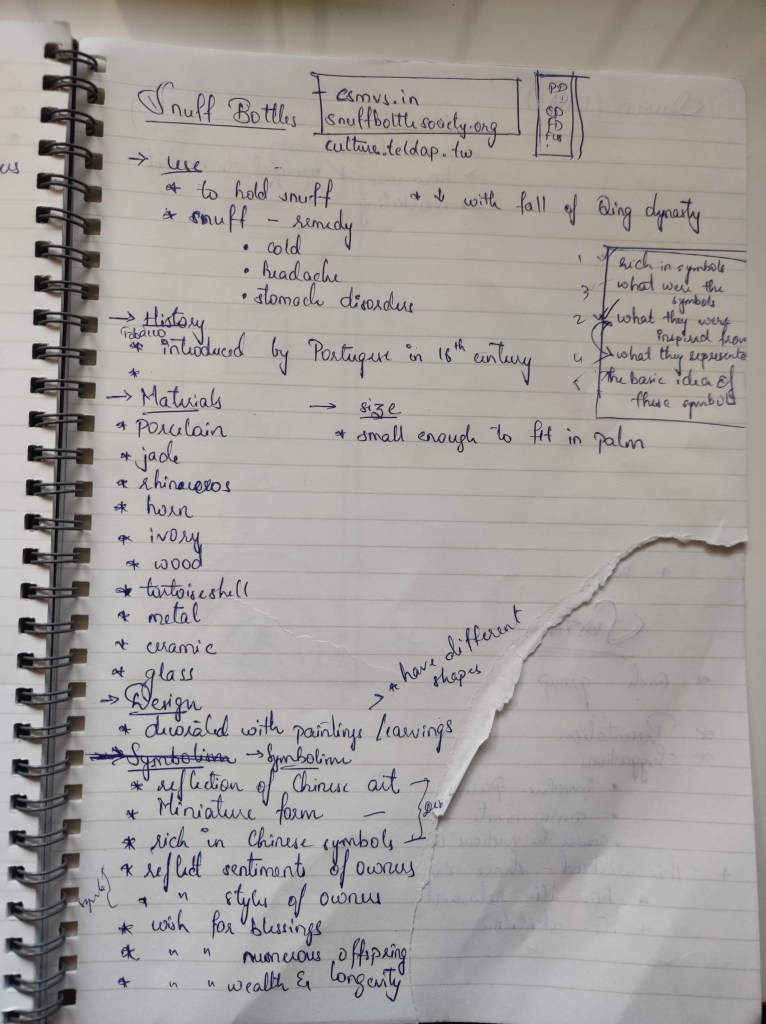 Snuff Bottles
csmvs.in
snuffbottlesociety.org
culture.teldap.tw
→ use
* to hold snuff
* ↓ with fall of Qing dynasty
* snuff - remedy
• cold
• headache
• stomach disorders
1 rich in symbols
3 what were the
symbols
2 what they were
inspired from
4 → what they represente
5 the basic idea of
these symbols
→ History
Tobacco
* introduced by Portugese in 16th century
*
→ Materials
* porcelain
* jade
* rhinoceros
* horn
* ivory
* wood
* tortoiseshell
* metal
* ceramic
* glass
→ size
* small enough to fit in palm
→ Design
* have different
shapes
* decorated with paintings / carvings
→ Symbolism → Symbolism
* reflection of Chinese art
* Miniature form -
* rich in Chinese symbols
* reflect sentiments of owners
* " styles of owners
* wish for blessings
* " " numerous offspring
* " " wealth & longevity